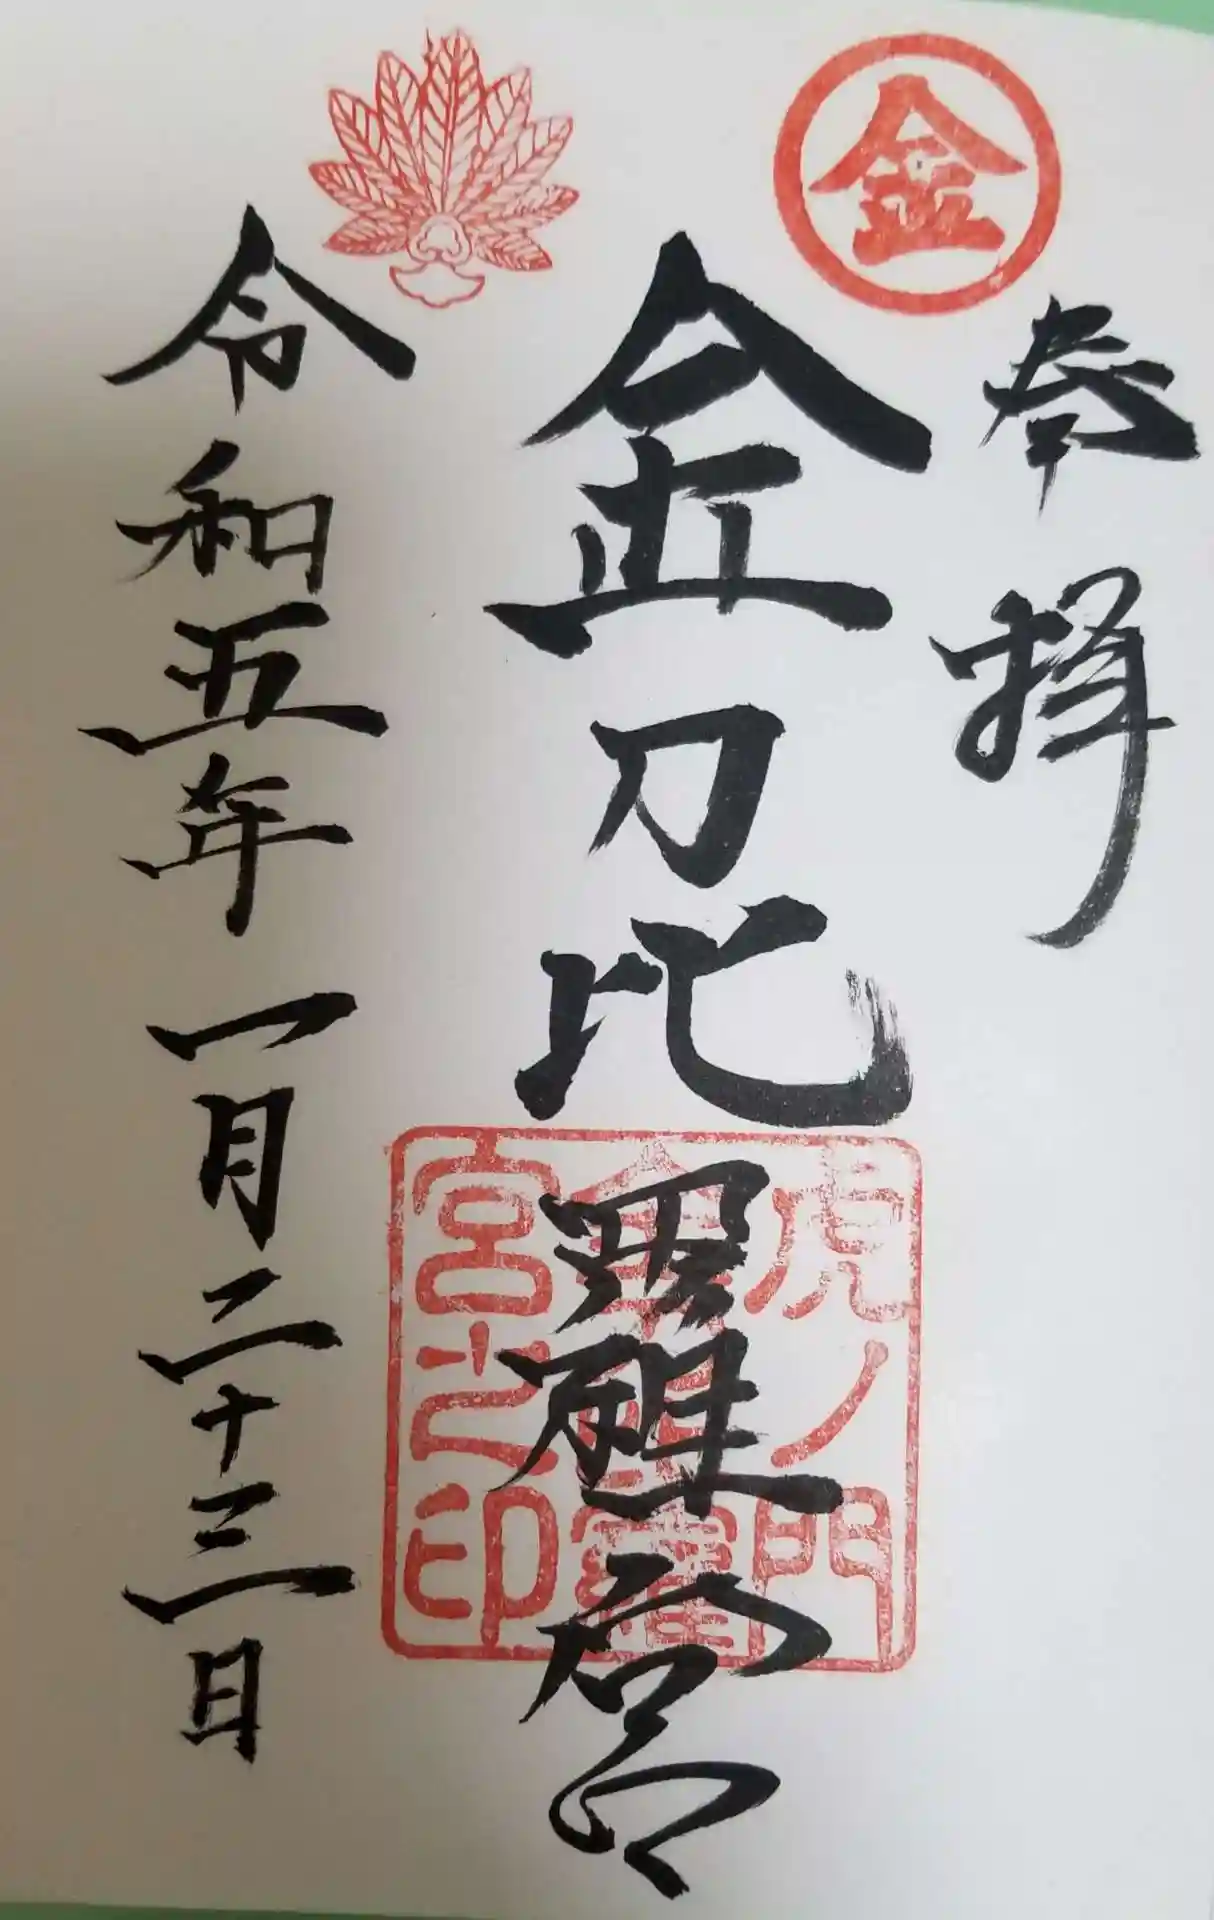 金
奉拝
金刀比羅宮
虎ノ門
金刀比羅
宮之印
令和五年一月二十三日